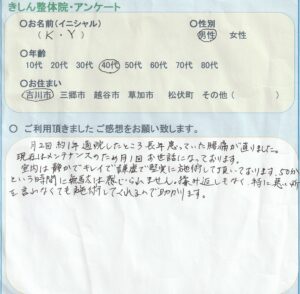 きしん整体院・アンケート
○お名前(イニシャル)
○性別
(K・Y)
男性 女性
○年齢
10代 20代 30代 40代 50代 60代 70代 80代
○お住まい
吉川市 三郷市 越谷市 草加市 松伏町 その他( )
○ ご利用頂きました ご感想をお願い致します。
月2回 約1年通院したところ長年患っていた腰痛が直りました。
現在はメンテナンスのため月1回お世話になっております。
室内は静かでキレイで謙虚で堅実に施術して頂いております。50分
という時間に無駄は感じられません。揉み返しもなく、特に悪い所
を言わなくても施術してくれるので助かります。